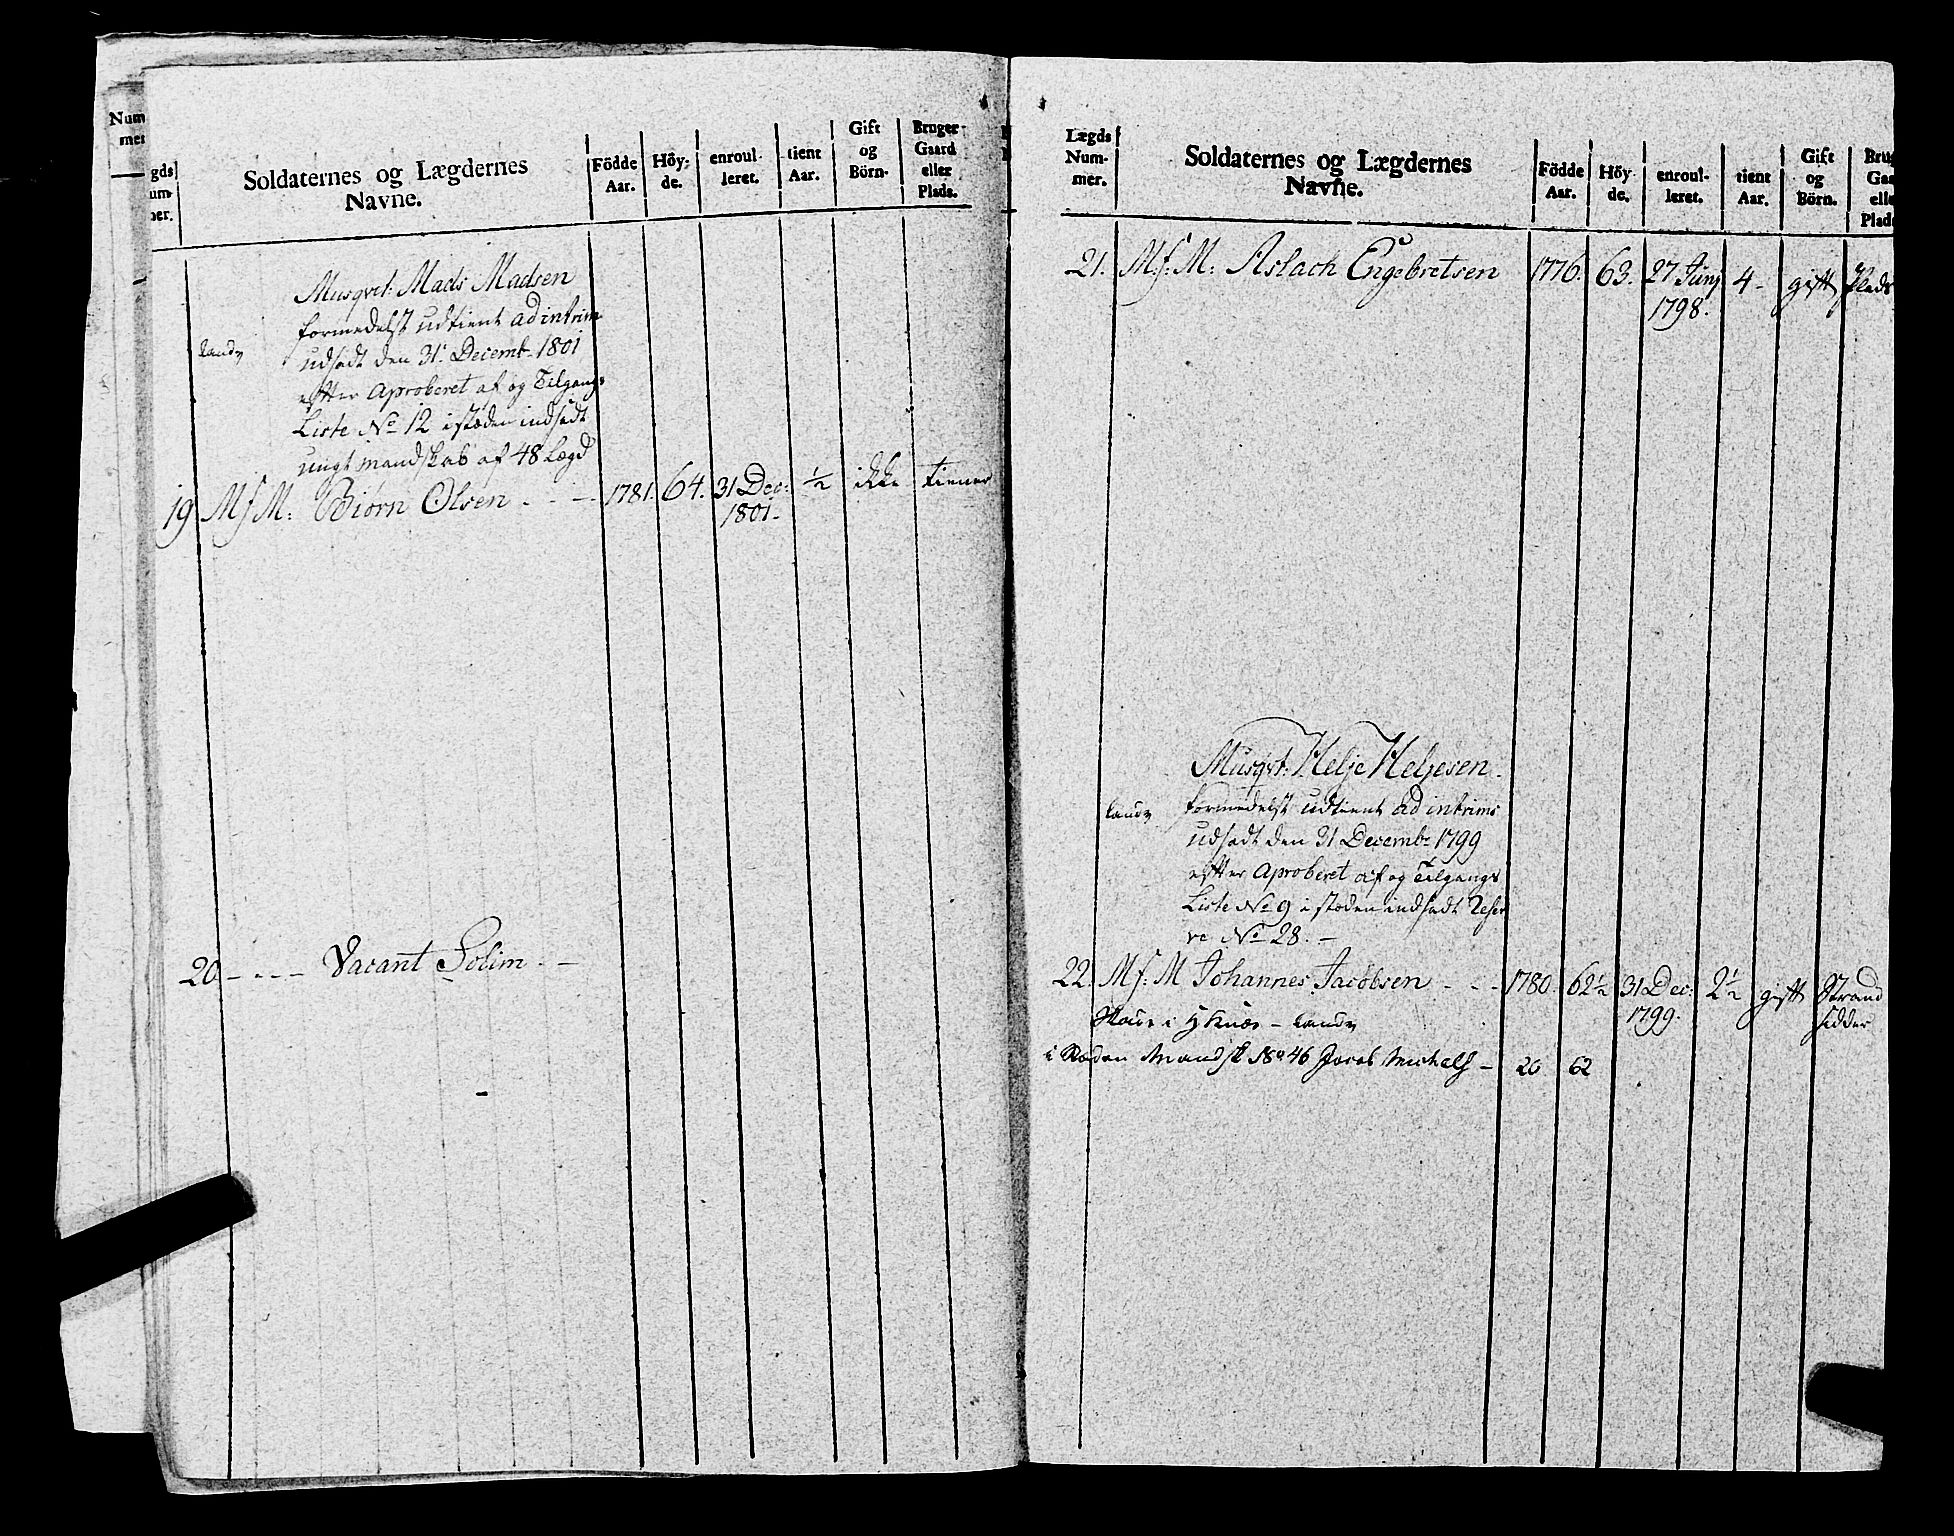 Num
mer
gds
um-
per.
Soldaternes og Lægdernes
Navne.
Födde
Aar.
Höy-
de.
enroul-
leret.
tient
Aar.
Gift
og
Börn.
Bruger
Gaard
eller
Plads.
Musqvet: Mads Madsen
formedelst udtient ad intrim
Landv
udsadt den 31 Decemb. 1801
efter Aproberet af og Tilgangs
Liste No 12 i stæden indsadt
ungt mandskab af 48 Lægd
19 M: f: M: Biörn Olsen - - - 1781. 64. 31 Dec: ½ ikke tiener
1801.
20 - - - - Vacant Solim - -
Lægds
Num-
mer.
Soldaternes og Lægdernes
Navne.
Födde
Aar.
Höy-
de.
enroul-
leret.
tient
Aar.
Gift
og
Börn.
Brug
Gaa
elle
Plads
21. M: f: M: Aslach Engebretsen 1776. 63. 27 Junj 4 - gift Plads
1798.
Musqvt: Helje Heljesen.
Landv formedelst udtient ad intrims
udsadt den 31 Decemb 1799
efter Aproberet af og Tilgangs
Liste No 9 i stæden indsadt Reser
ve No 28. -
22. M: f: M Johannes Jacobsen - - - 1780. 62½ 31 Dec: 2½ gift Strand
1799. sidder
Skade i Knæe - Landv
i Stæden Mandsk 46 Jacob Michels - 20 62